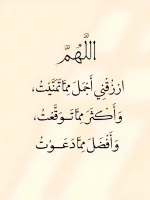 اللَّهُمَّ
ارزُقْنِي أَجْمَلَ مِمَّا تَمَنَّيْتُ،
وَأَكْثَرَ مِمَّا تَوَقَّعْتُ،
وَأَفْضَلَ مِمَّا دَعَوْتُ